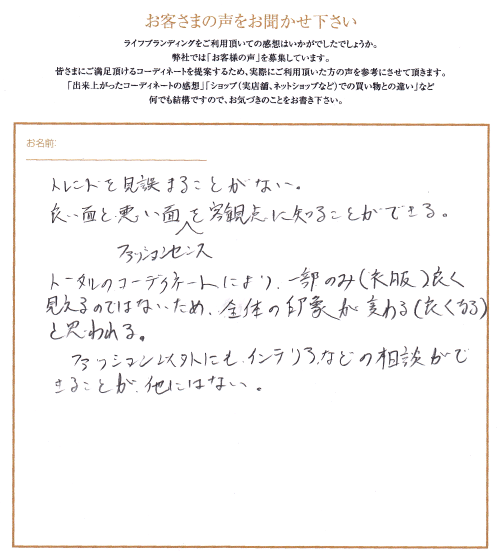 お客さまの声をお聞かせ下さい
ライフブランディングをご利用頂いての感想はいかがでしたでしょうか。
弊社では「お客様の声」を募集しています。
皆さまにご満足頂けるコーディネートを提案するため、実際にご利用頂いた方の声を参考にさせて頂きます。
「出来上がったコーディネートの感想」「ショップ（実店舗、ネットショップなど）での買い物との違い」など
何でも結構ですので、お気づきのことをお書き下さい。
お名前:
トレンドを見誤まることがない。
良い面と悪い面を客観点に知ることができる。
ファッションセンス
トータルのコーディネートにより、一部のみ(衣服)良く
見えるのではないため、全体の印象が変わる(良くなる)
と思われる。
ファッション以外にも、インテリアなどの相談がで
きることが、他にはない。